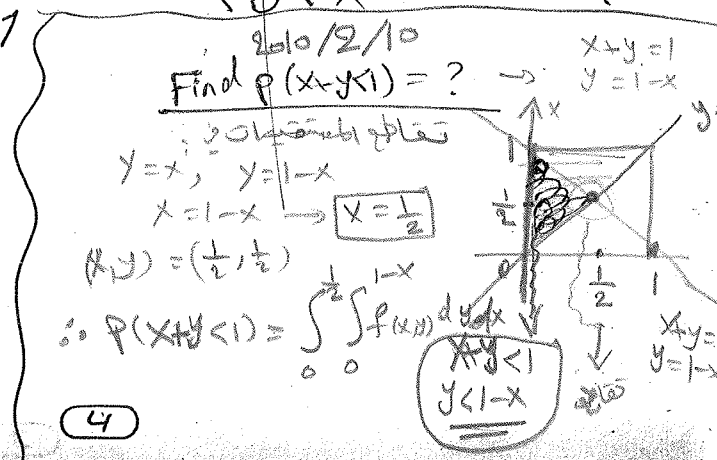 2010/2/10
Find p(x+y<1) = ? →
x+y=1
y=1-x
تقاطع المستقيمات:
y=x, y=1-x
x=1-x → x=1/2
(x,y)=(1/2,1/2)
∴ P(x+y<1) = ∫₀^{1/2} ∫₀^{1-x} f(x,y) dydx
x+y<1
y<1-x
x
y
1
1/2
0
1/2
1
x+y=
y=1-x
تقاطع
4